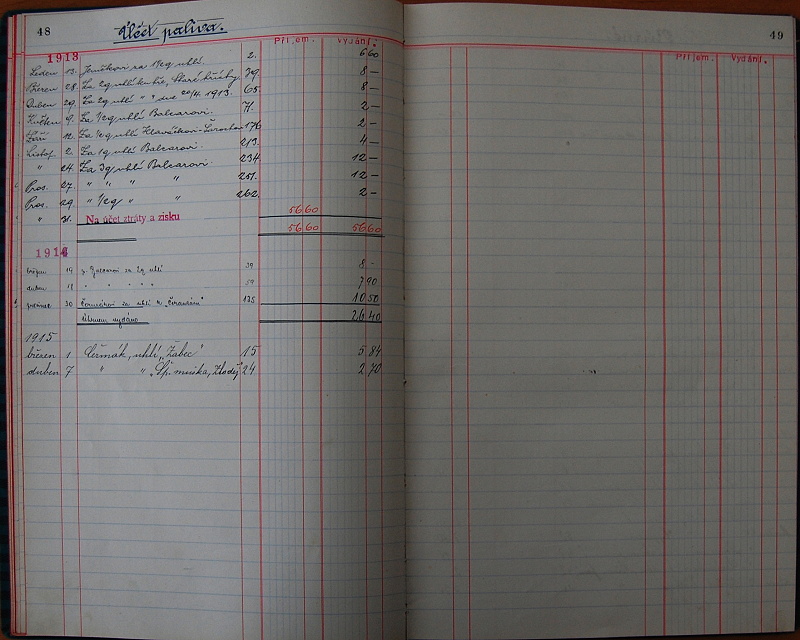 48
Účet paliva.
Příjem. Vydání.
1913
Leden 13. Jeníčkovi za uhlí. 2. 6 60
Březen 28. Za 2q uhlí 39. 8 —
Duben 29. Za 2q uhlí " " dne 20/4 1913. 65. 8 —
Květen 9. Za 1/2q uhlí Balcarovi. 71. 2 —
Září 12. Za 1/2q uhlí 176 2 —
Listop. 2. Za 1q uhlí Balcarovi. 213. 4 —
" 24. Za 3q uhlí Balcarovi. 234 12 —
Pros. 27. " " " " 251. 12 —
Pros. 29. " 1/2q " " 262. 2 —
" 31. Na účet ztráty a zisku 56.60
56.60 56.60
1914
březen 19 p. Balcarovi za 2q uhlí 39 8 -
duben 18 " " " " " 59 7 90
prosinec 30 za uhlí 135 10 50
Úhrnem vydáno 26 40
1915
březen 1 Čermák, uhlí, „Žabec" 15 5 84
duben 7 " " „Šp. muška, Zloděj" 24 2 70
49
Příjem. Vydání.